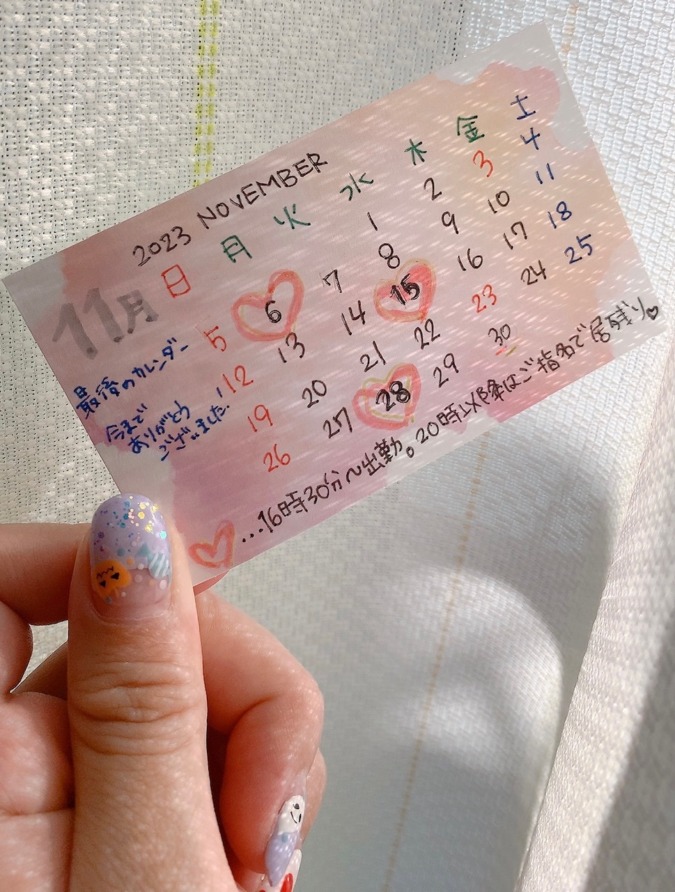 2023 NOVEMBER
11月
日 月 火 水 木 金 土
1 2 3 4
5 6 7 8 9 10 11
12 13 14 15 16 17 18
19 20 21 22 23 24 25
26 27 28 29 30
最後のカレンダー
今まで
ありがとう
ございました!
♡…16時30分〜出勤。20時以降はご指名で居残り♥